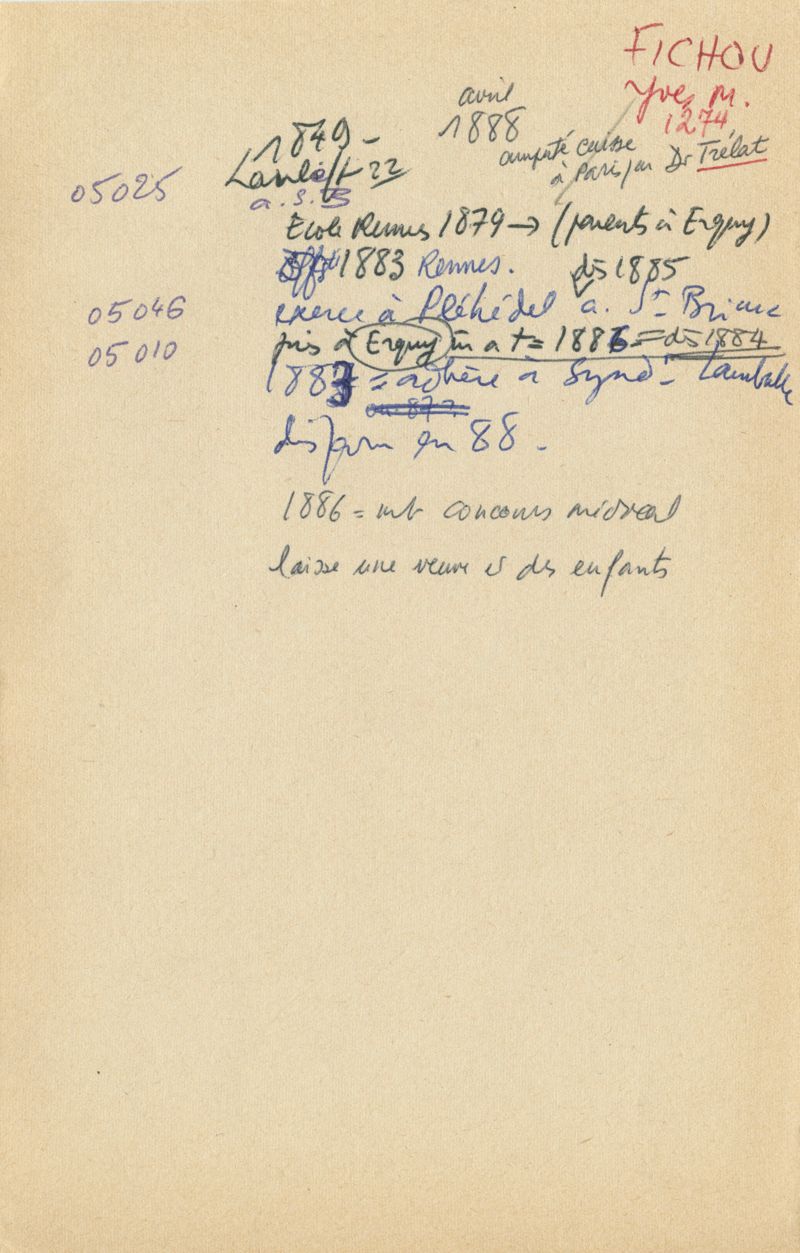 FICHOU
Yves M.
1274
1849 -
avril
1888
amputé cuisse
à Paris par Dr Trélat
05025
Lanleff 22
a. S. B
Ecole Rennes 1879 → (parents à Erquy)
1883 Rennes. dès 1885
05046
exerce à Pléhédel a. St Brieuc
05010
puis à Erquy 1886 = dès 1884
1887 = adhère à Synd. Lamballe
disparu en 88 -
1886 = mb concours médical
laisse une veuve et des enfants